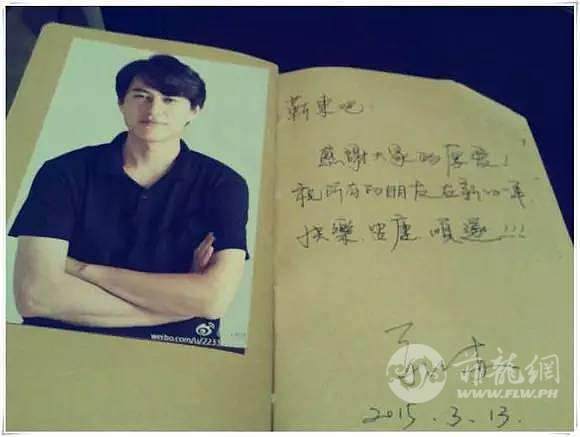 靳東吧:
感謝大家的厚愛!
祝所有的朋友在新的一年,
快樂.安康.順遂!!!
2015.3.13.
weibo.com/u/223
菲龍網
WWW.FLW.PH